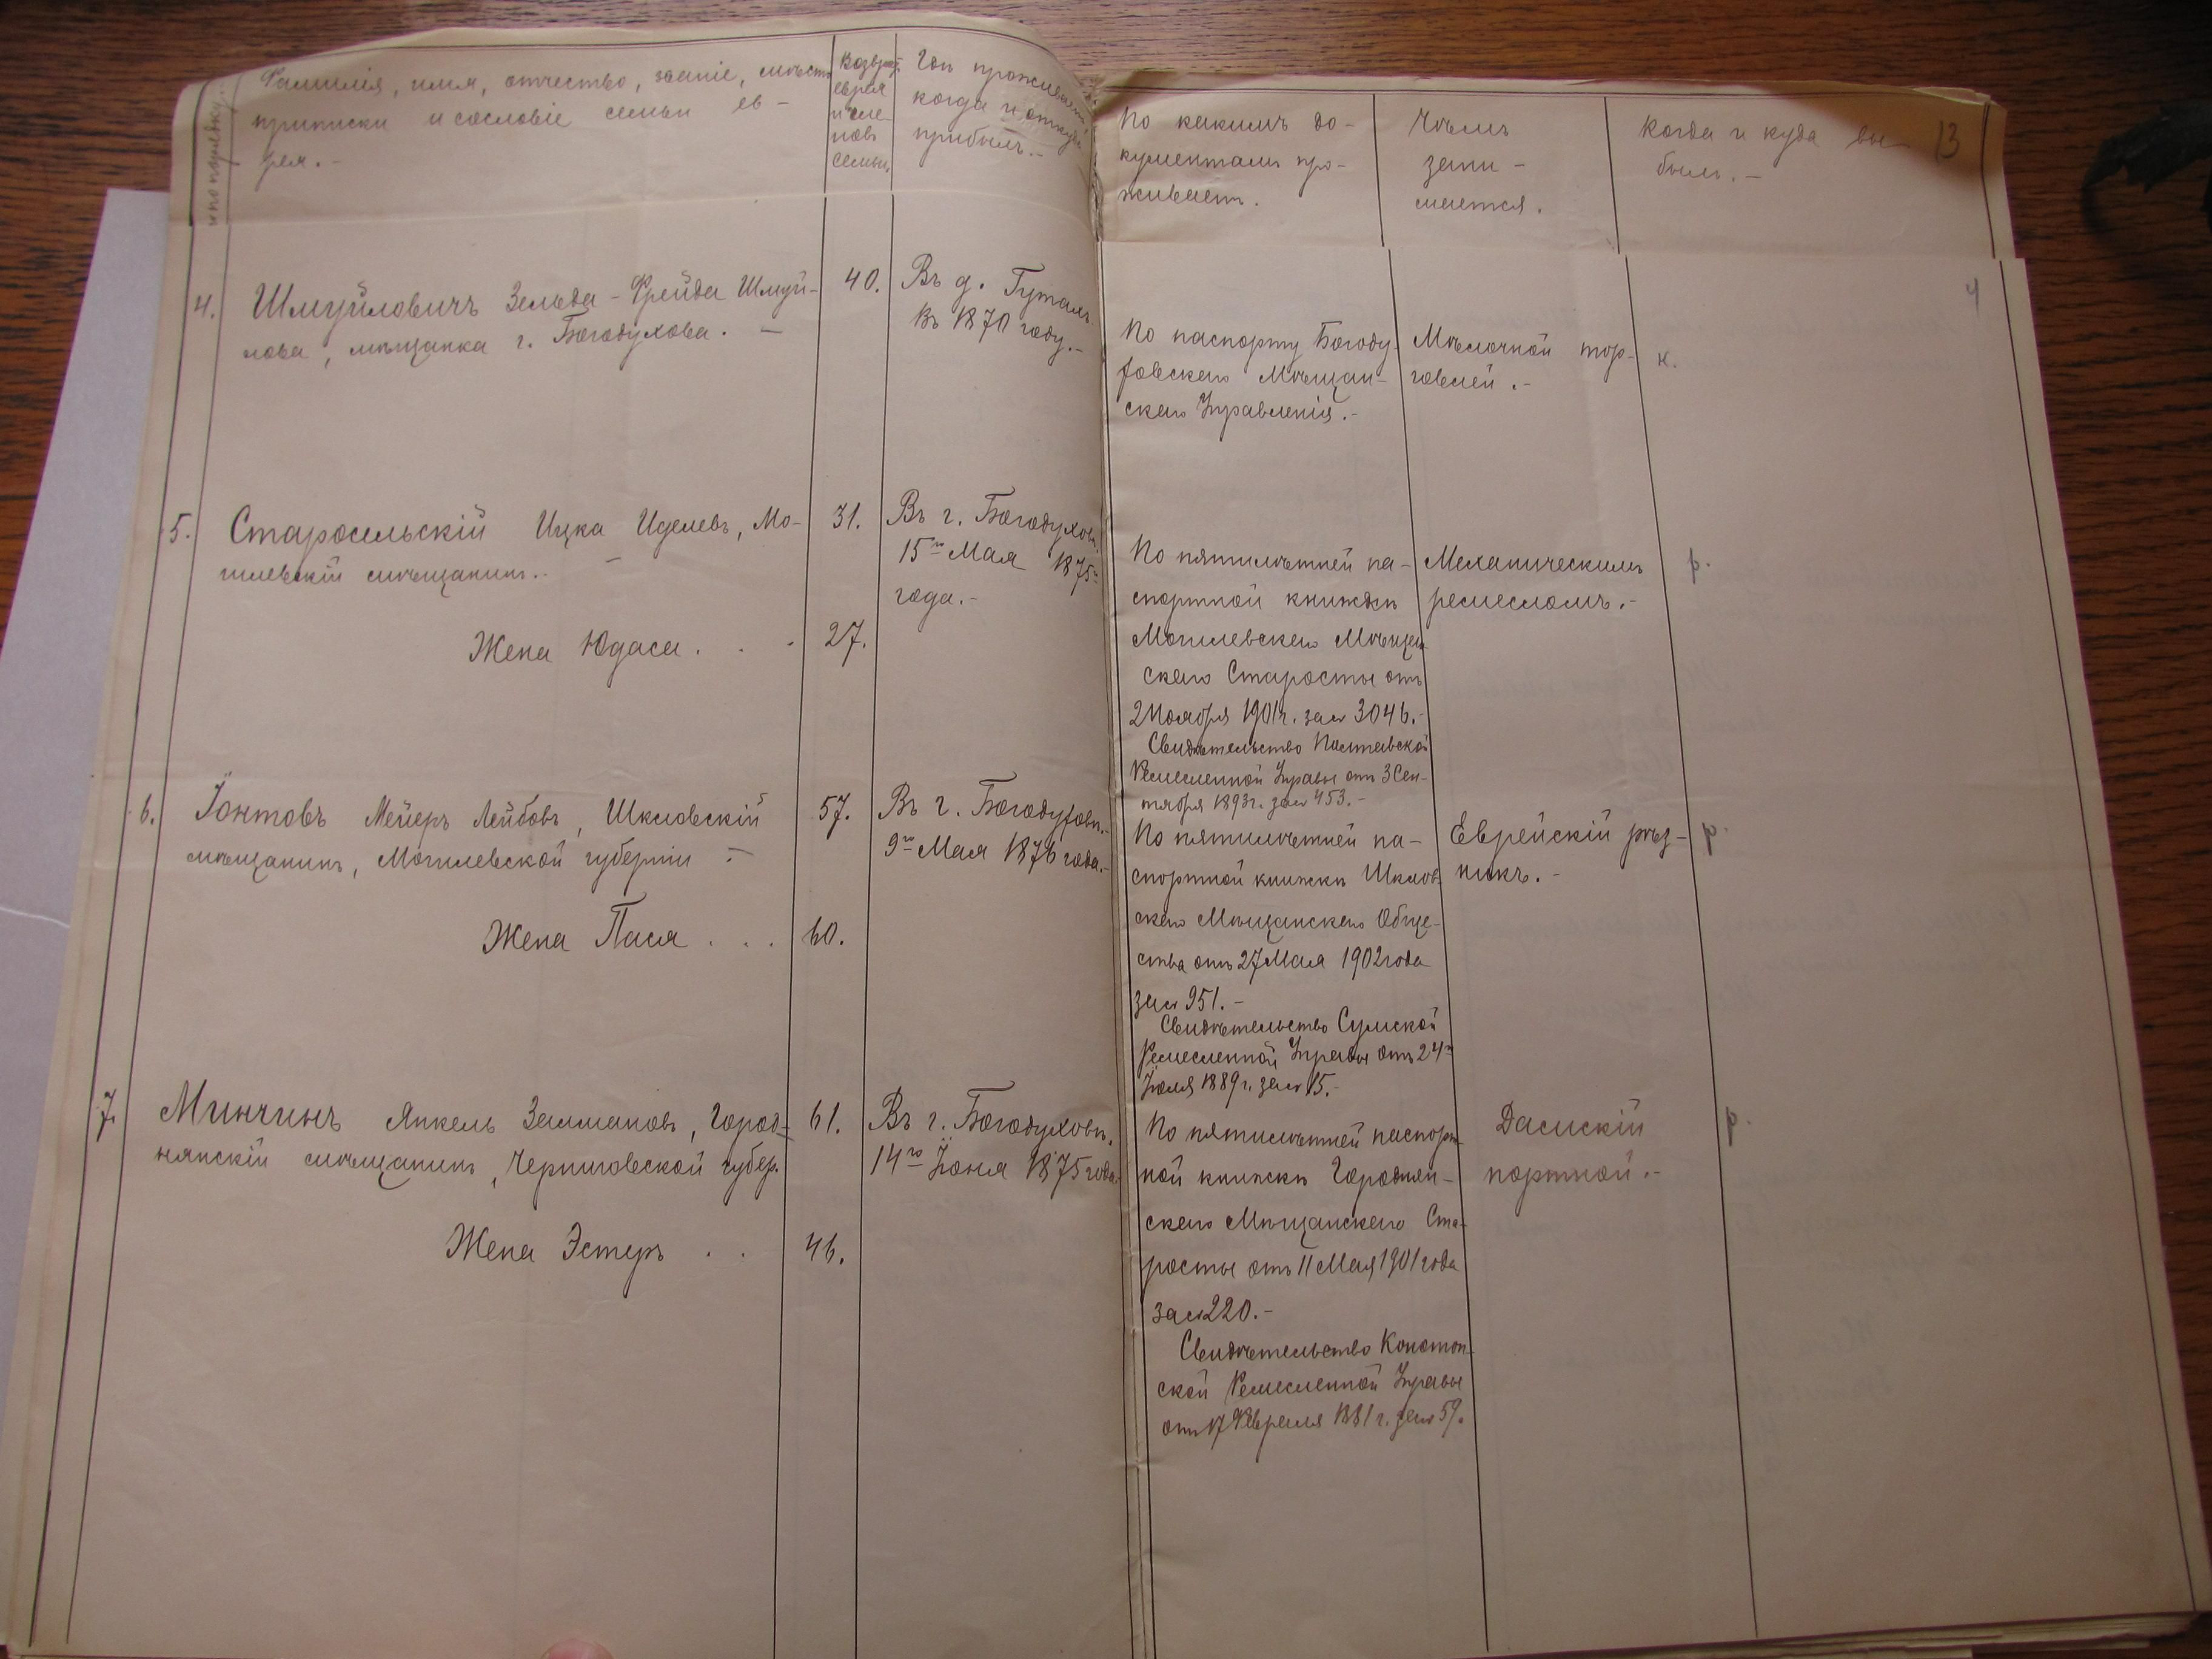 № по порядку.
Фамилія, имя, отчество, званіе, мѣсто
приписки и сословіе семьи ев-
рея.-
Возраст.
еврея
и чле-
новъ
семьи.
Гдѣ проживаетъ,
когда и откуда
прибылъ.-
По какимъ до-
кументамъ про-
живаетъ.
Чѣмъ
зани-
мается.
Когда и куда вы-
былъ.-
13
4
4.
Шмуйловичъ Зельда-Фрейда Шмуй-
лова, мѣщанка г. Богодухова.-
40.
Въ д.
Въ 1870 году.-
По паспорту Богоду-
ховскаго Мѣщан-
скаго Управленія.-
Мѣлочной тор-
говлей.-
н.
5.
Старосельскій Ицка Иделевъ, Мо-
гилевскій мѣщанинъ.-
31.
Въ г. Богодуховѣ.
15го Мая 1875го
года.-
Жена Юдаса . . .
27.
По пятилѣтней па-
спортной книжкѣ
Могилевскаго Мѣщан-
скаго Старосты отъ
2 Ноября 1901 г. за № 3046.-
Свидѣтельство Полтавской
Ремесленной Управы отъ 3 Сен-
тября 1893 г. за № 453.-
Механическимъ
ремесломъ.-
р.
6.
Іонтовъ Мейеръ Лейбовъ, Шкловскій
мѣщанинъ, Могилевской губерніи.-
57.
Въ г. Богодуховѣ.-
9го Мая 1876 года.-
Жена Пася . . .
60.
По пятилѣтней па-
спортной книжкѣ Шклов-
скаго Мѣщанскаго Обще-
ства отъ 27 Мая 1902 года
за № 951.-
Свидѣтельство Сумской
Ремесленной Управы отъ 24го
Іюля 1889 г. за № 15.-
Еврейскій рѣз-
никъ.-
р.
7.
Минчинъ Янкель Залмановъ, Город-
нянскій мѣщанинъ, Черниговской губер.
61.
Въ г. Богодуховѣ.
14го Іюня 1875 года.
Жена Эстеръ . .
46.
По пятилѣтней паспорт-
ной книжкѣ Городнян-
скаго Мѣщанскаго Ста-
росты отъ 11 Мая 1901 года
за № 220.-
Свидѣтельство Конотоп-
ской Ремесленной Управы
отъ 17 Февраля 1881 г. за № 59.
Дамскій
портной.-
р.